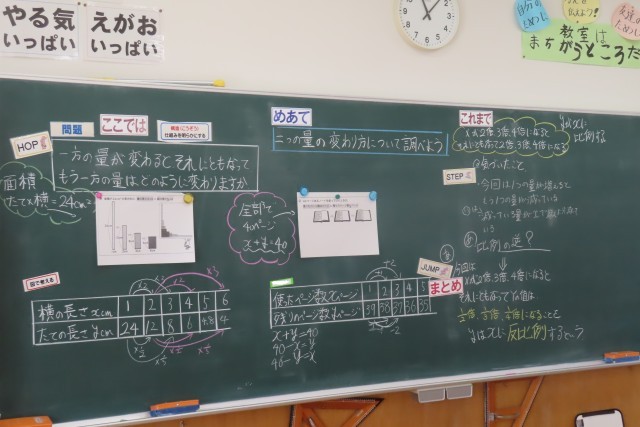 やる気
いっぱい
えがお
いっぱい
教室は
まちがうところだ
HOP
問題
ここでは
構造(こうぞう)
仕組みを明らかにする
一方の量が変わると それにともなって
もう一方の量は、どのように変わりますか
面積
たて×横=24cm²
図で考える
横の長さxcm 1 2 3 4 5 6
たての長さycm 24 12 8 6 4.8 4
めあて
二つの量の変わり方について調べよう
全部で
40ページ
x+y=40
使ったページ数xページ 1 2 3 4 5
残りのページ数yページ 39 38 37 36 35
x+y=40
40-x=y
40-y=x
これまで
xが2倍、3倍、4倍になると
それにともなって2倍、3倍、4倍になる
yはxに
比例する
STEP
気づいたこと
比例の逆?
JUMP
まとめ
xが2倍、3倍、4倍になると
それにともなってyの値は
1/2倍、1/3倍、1/4倍になることを
yはxに反比例するという